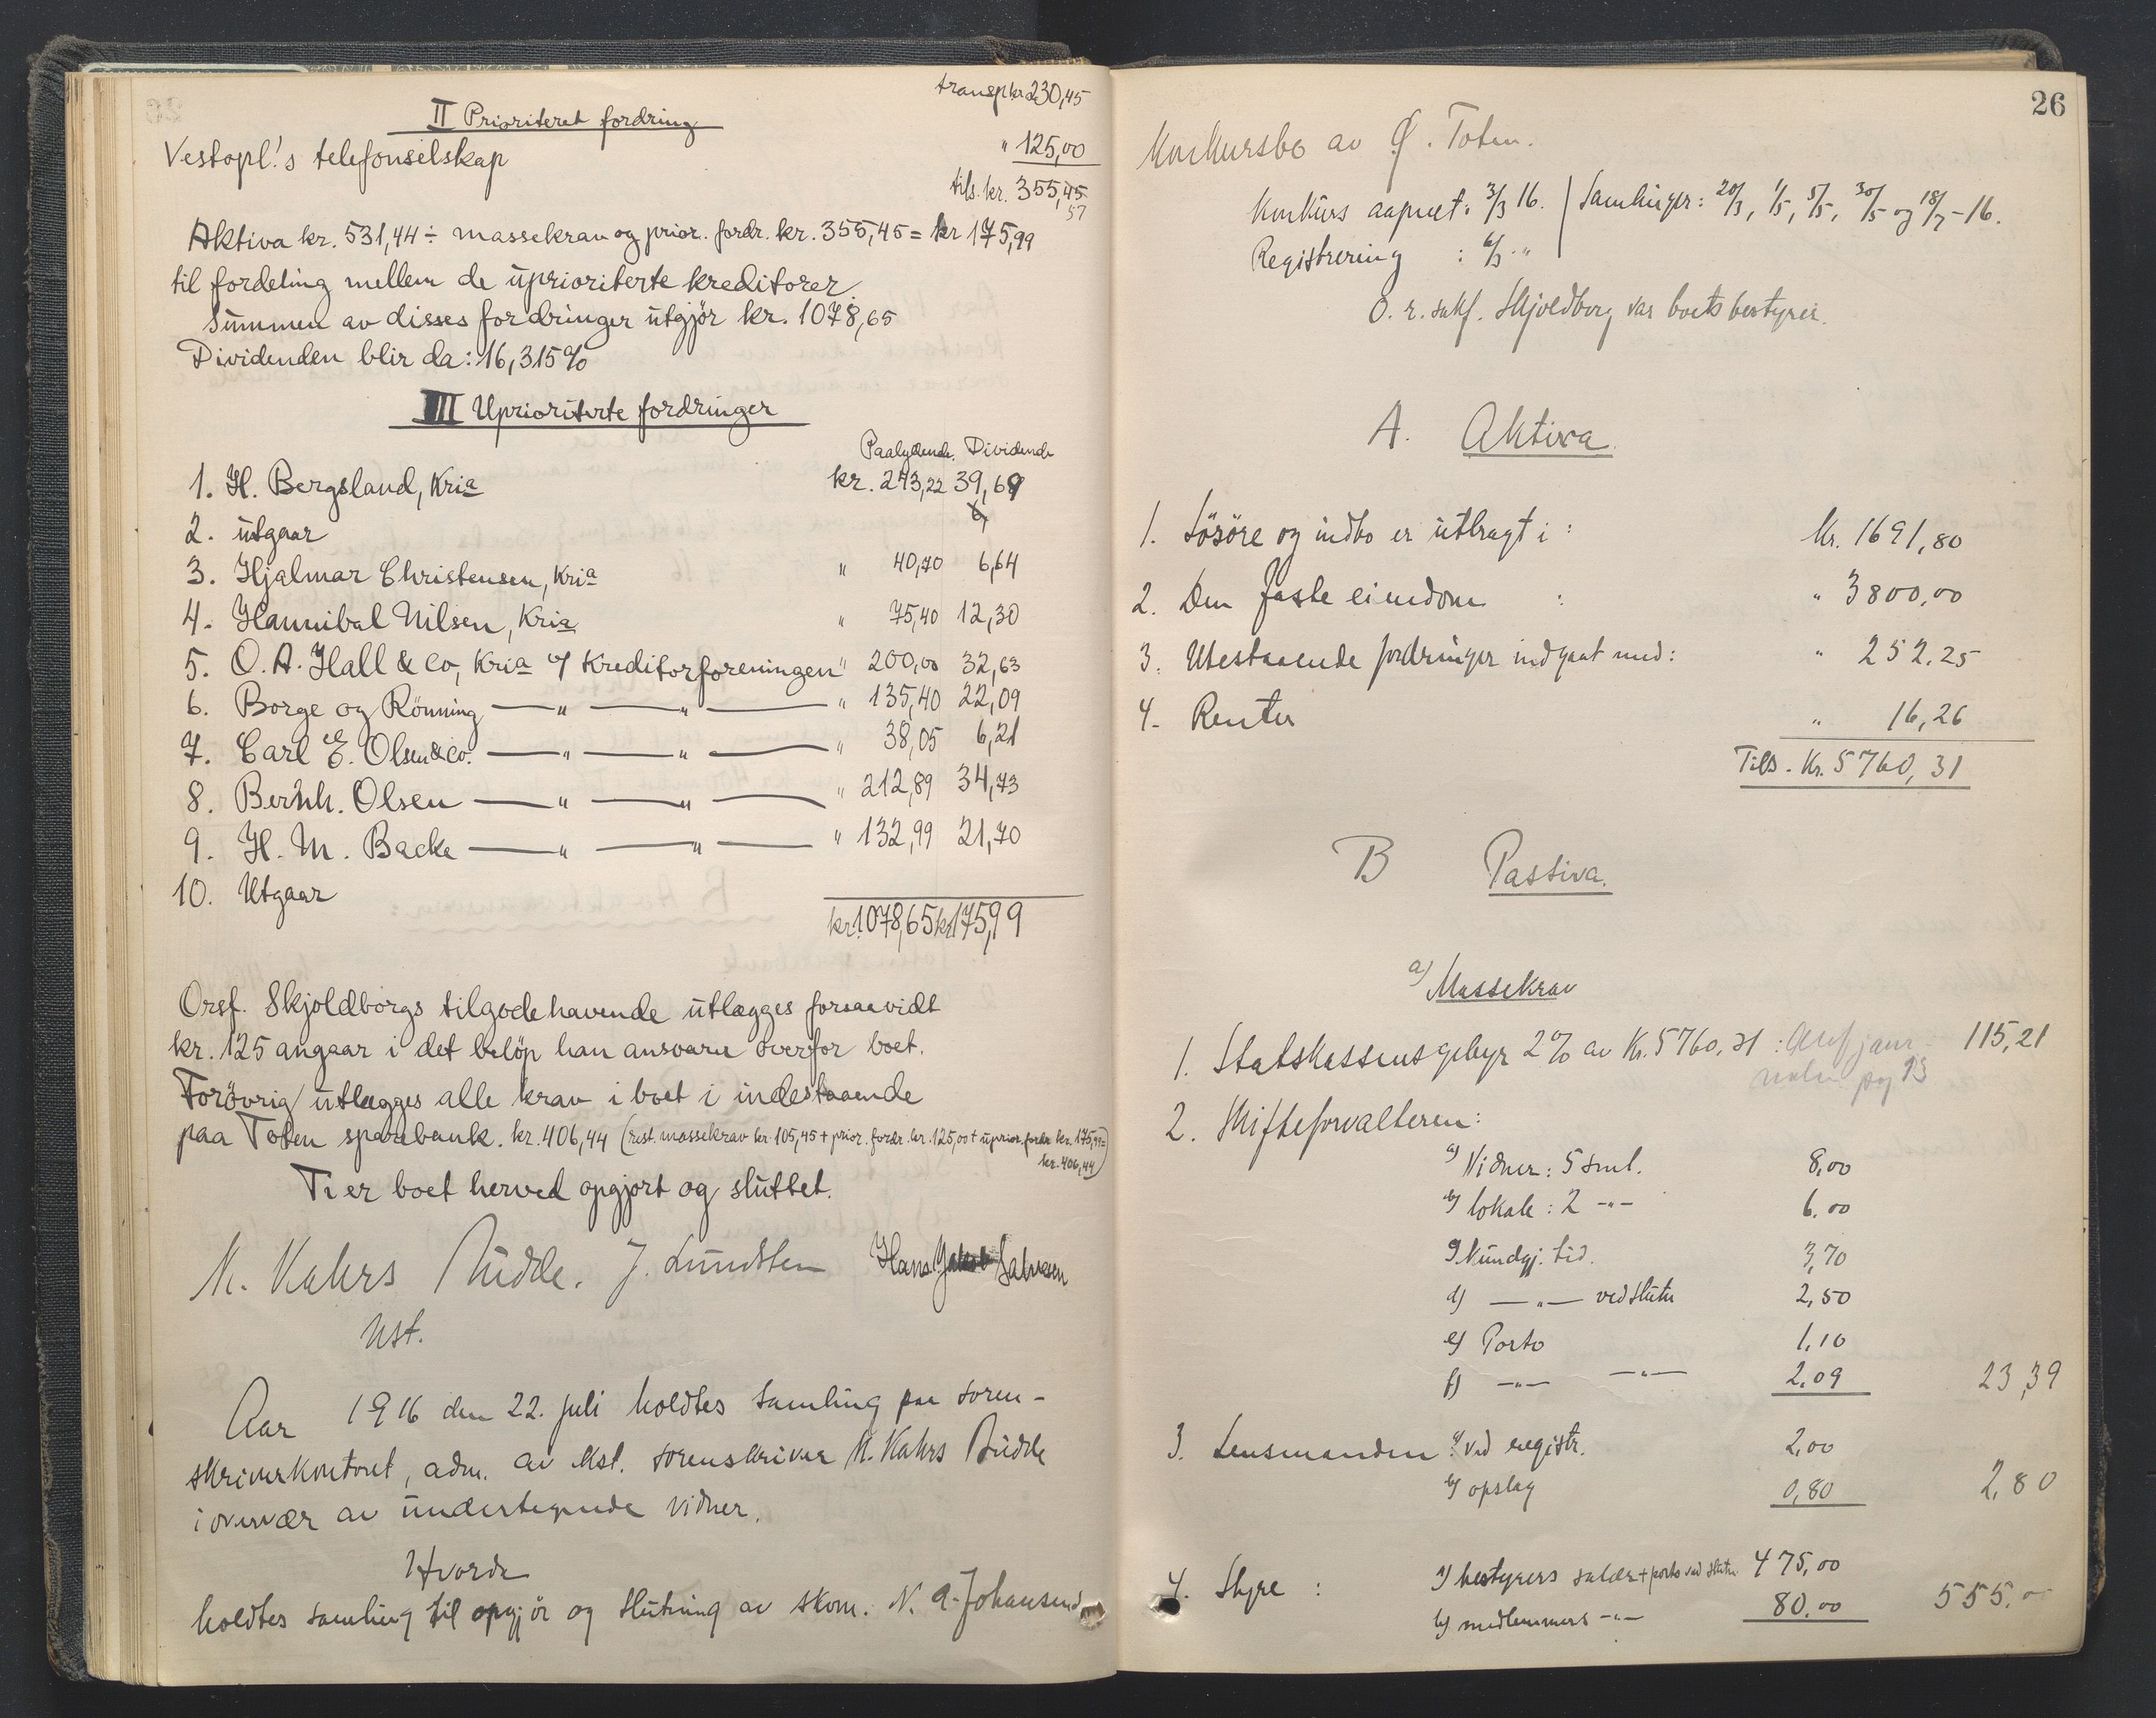 transp. kr. 230,45
II Prioriteret fordring
Vestopl.'s telefonselskap " 125,00
tils. kr. 355,45
57
Aktiva kr. 531,44 ÷ massekrav og prior. fordr. kr. 355,45 = kr 175,99
til fordeling mellem de uprioriterte kreditorer
Summen av disses fordringer utgjör kr. 1078,65
Dividenden blir da: 16,315%
III Uprioriterte fordringer
Paalydende. Dividende
1. H. Bergsland, Kria kr. 243,22 39,69
2. utgaar
3. Hjalmar Christensen, Kria " 40,70 6,64
4. Hannibal Nilsen, Kria " 75,40 12,30
5. O. A. Hall & Co, Kria v/ Kreditorforeningen " 200,00 32,63
6. Borge og Rönning — " — " — " 135,40 22,09
7. Carl E. Olsen & Co. — " — " — " 38,05 6,21
8. Bernh. Olsen — " — " — " 212,89 34,73
9. H. M. Backe — " — " — " 132,99 21,70
10. Utgaar
kr. 1078,65 kr 175,99
Orsf. Skjoldborgs tilgodehavende utlægges forsaavidt
kr. 125 angaar i det belöp han ansvarer overfor boet.
Forövrig utlægges alle krav i boet i indestaaende
paa Toten sparebank. kr. 406,44 (rest. massekrav kr. 105,45 + prior. fordr. kr. 125,00 + uprior. fordr. kr. 175,99 =
kr. 406,44)
Ti er boet herved opgjort og sluttet.
N. Kahrs Budde. J. Lundsten Hans Jakob Salvesen
kst.
Aar 1916 den 22. juli holdtes samling paa soren-
skriverkontoret, adm. av kst. sorenskriver N. Kahrs Budde
i overvær av undertegnede vidner.
Hvorda
holdtes samling til opgjör og slutning av skom. N. A. Johansens
26
Konkursbo av Ø. Toten.
Konkurs aapnet: 3/3 16. Samlinger: 20/3, 1/5, 5/5, 30/5 og 18/7 - 16.
Registrering : 6/3 - "
O. r. sakf. Skjoldborg var boets bestyrer.
A. Aktiva
1. Lösöre og indbo er utbragt i : Kr. 1691,80
2. Den faste eiendom : " 3800,00
3. Utestaaende fordringer indgaat med: " 252.25
4. Renter " 16,26
Tils. Kr. 5760,31
B Passiva.
a) Massekrav
1. Statskassens gebyr 2% av Kr. 5760,31 : 115,21
2. Skifteforvalteren:
a) Vidner: 5 saml. 8,00
b) lokale: 2 -"- 6.00
c) Kundgj. tid. 3,70
d) —"— ved slutn 2,50
e) Porto 1,10
f) -"- -"- 2.09 23,39
3. Lensmanden a) ved registr. 2,00
b) opslag 0,80 2,80
4. Styre : a) bestyrers salær + porto ved slutn 475,00
b) medlemmers -"- 80.00 555.00